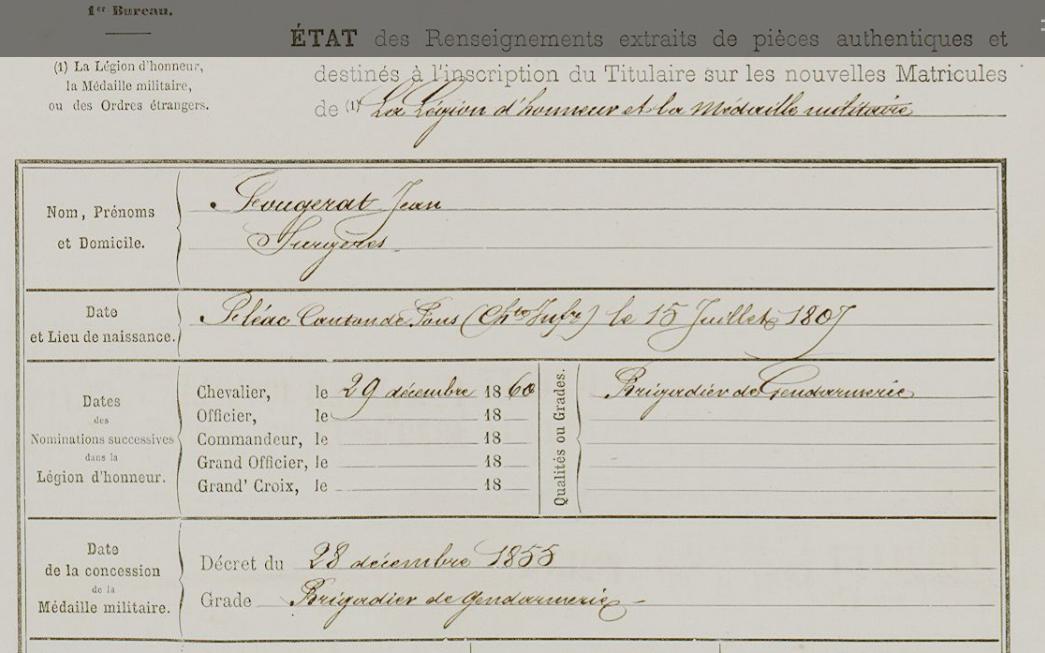 1er Bureau.
ÉTAT des Renseignements extraits de pièces authentiques et
destinés à l'inscription du Titulaire sur les nouvelles Matricules
de (1) La Légion d'honneur et la Médaille militaire
(1) La Légion d'honneur,
la Médaille militaire,
ou des Ordres étrangers.
Nom, Prénoms
et Domicile.
Fougerat Jean
Surgères
Date
et Lieu de naissance.
Pléac Canton de Pons (Chte Infre) le 15 Juillet 1807
Dates
des
Nominations successives
dans la
Légion d'honneur.
Chevalier, le 29 décembre 1860
Officier, le 18
Commandeur, le 18
Grand Officier, le 18
Grand' Croix, le 18
Qualités ou Grades.
Brigadier de Gendarmerie
Date
de la concession
de la
Médaille militaire.
Décret du 28 décembre 1855
Grade Brigadier de gendarmerie